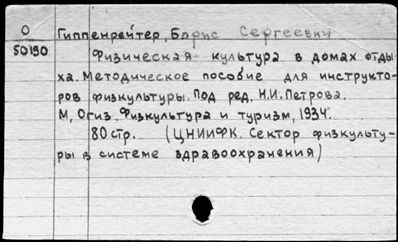 О
50190
Гиппенрейтер, Борис Сергеевич
Физическая культура в домах отды-
ха. Методическое пособие для инструкто-
ров физкультуры. Под ред. Н.И. Петрова.
М, Огиз. Физкультура и туризм, 1934.
80 стр. (ЦНИИФК. Сектор физкульту-
ры в системе здравоохранения)